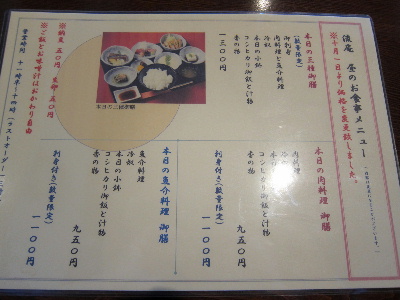 昼のお食事メニュー
※十月一日より価格を変更致しました。
本日の三種御膳
(数量限定)
御刺身
肉料理と魚介料理
冷奴
本日の小鉢
コシヒカリ御飯と汁物
香の物
一三〇〇円
本日の三種御膳
※納豆 五〇円 生卵 五〇円
※ご飯とお味噌汁はおかわり自由
営業時間 十一時半~十四時(ラストオーダー
本日の肉料理 御膳
肉料理
冷奴
本日の小鉢
コシヒカリ御飯と汁物
香の物
九五〇円
刺身付き(数量限定)
一一〇〇円
本日の魚介料理 御膳
魚介料理
冷奴
本日の小鉢
コシヒカリ御飯と汁物
香の物
九五〇円
刺身付き(数量限定)
一一〇〇円